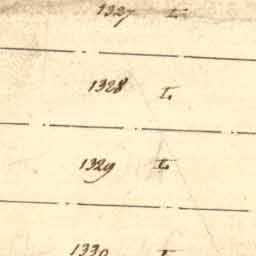 1327 L
1328 L
1329 L
1330 L